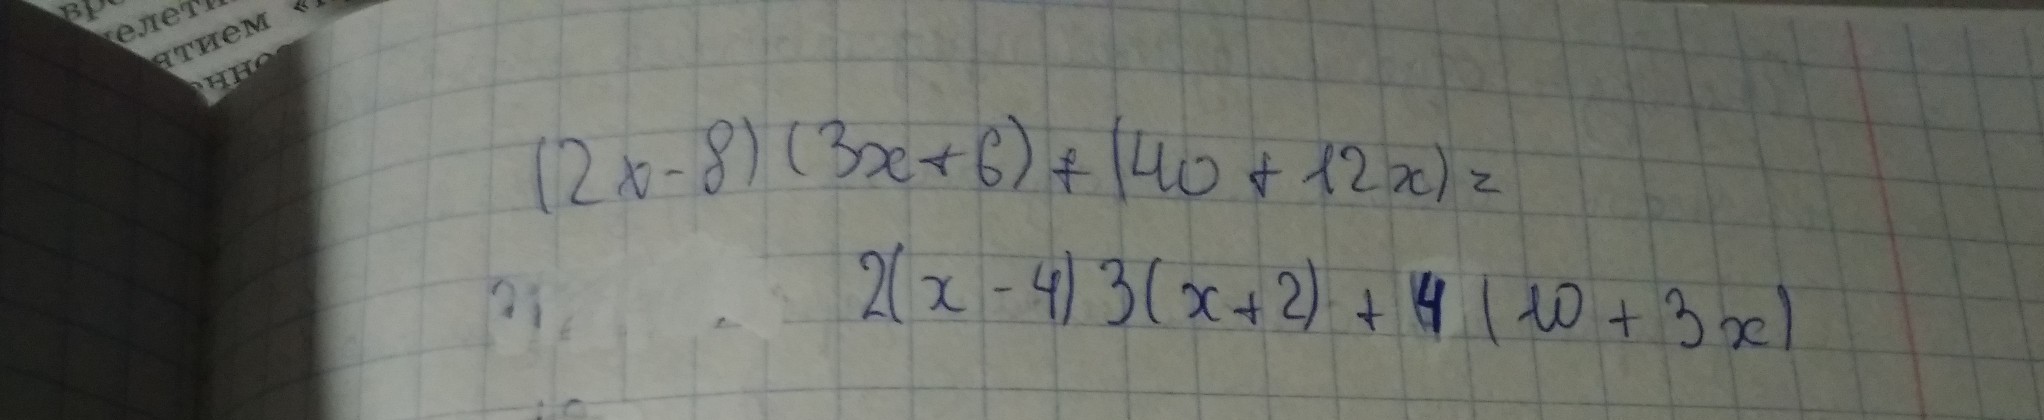 елети
ятием «
(2x-8)(3x+6)+(40+12x)=
2(x-4)3(x+2)+4(10+3x)